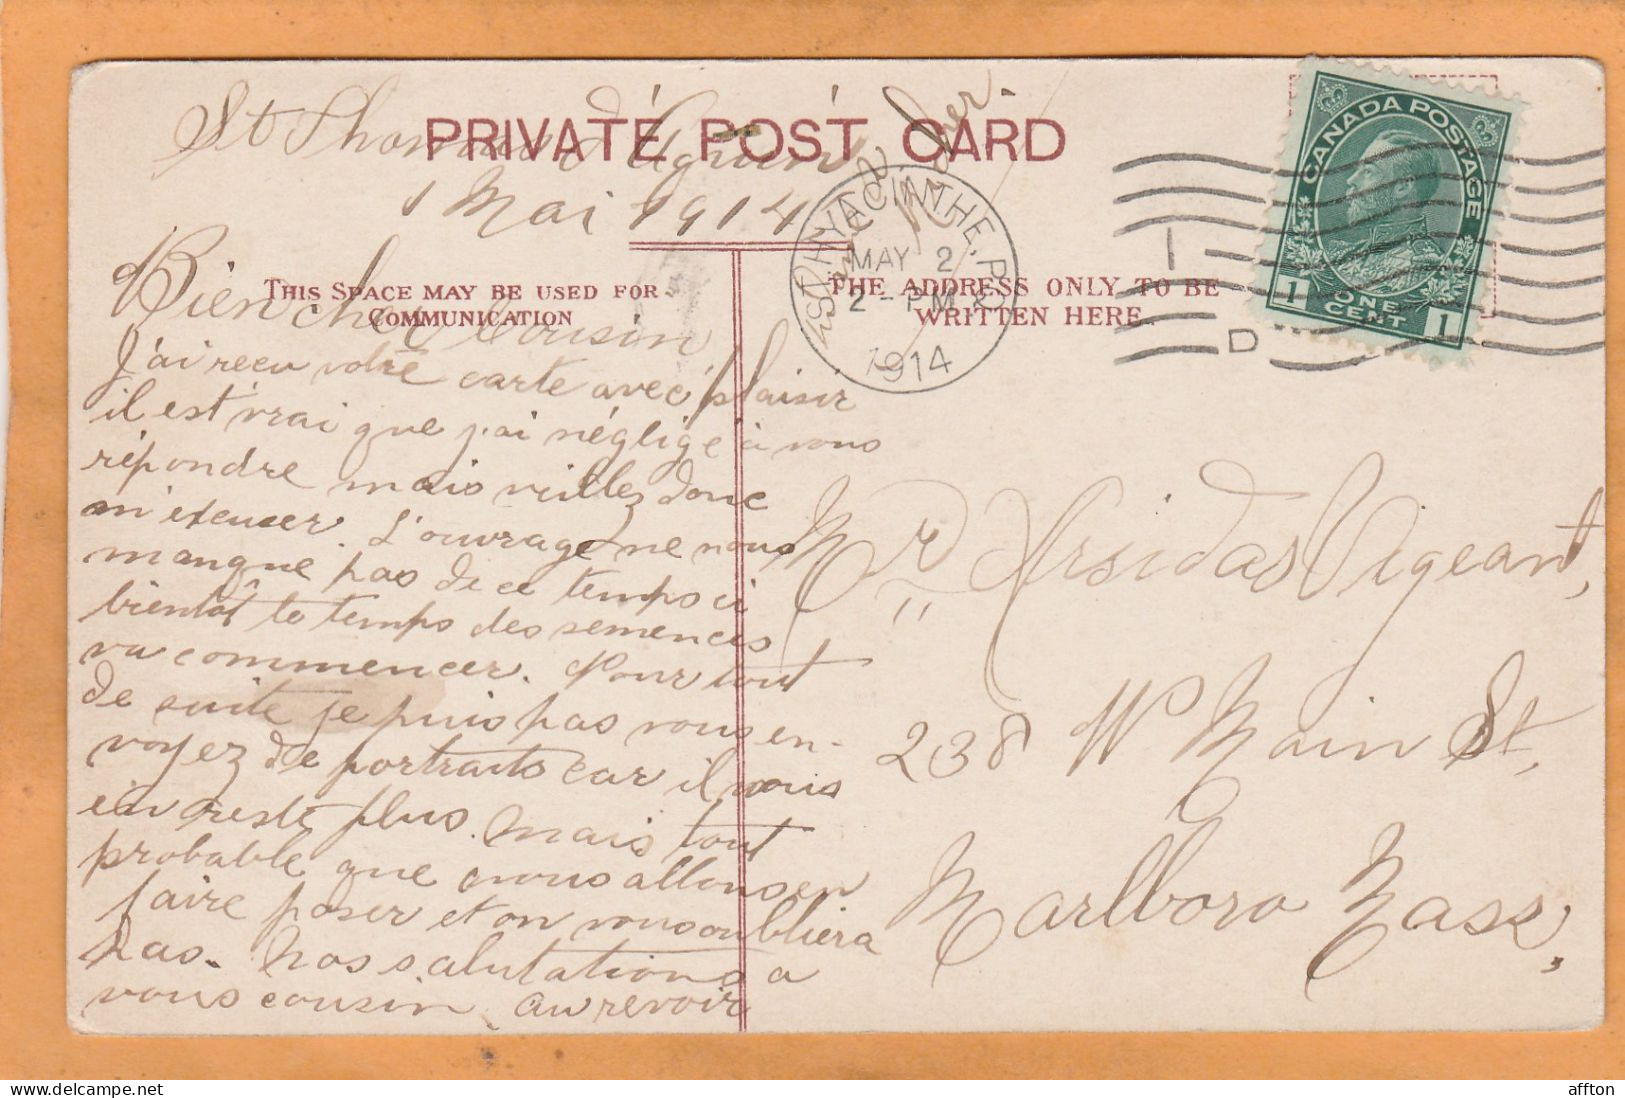 St Thomas d'Aquin
PRIVATE POST CARD
1 Mai 1914
THIS SPACE MAY BE USED FOR
COMMUNICATION
THE ADDRESS ONLY TO BE
WRITTEN HERE
Bien cher Cousin
J'ai recu votre carte avec plaisir
il est vrai que j'ai néglige à vous
répondre mais veillez donc
m'excuser. L'ouvrage ne nous
manque pas de ce temps ci
bientôt le temps des semences
va commencer. Pour tout
de suite je puis pas vous en-
voyez de portraits car il nous
en reste plus. Mais tout
probable que nous allons en
faire poser et on vous oubliera
pas. Nos salutations a
vous cousin. Au revoir
ST HYACINTHE, P.Q.
MAY 2
2 - PM
1914
D
CANADA POSTAGE
1 ONE CENT 1
Mr Arsidas Vigeant,
238 W Main St,
Marlboro Mass,
affton